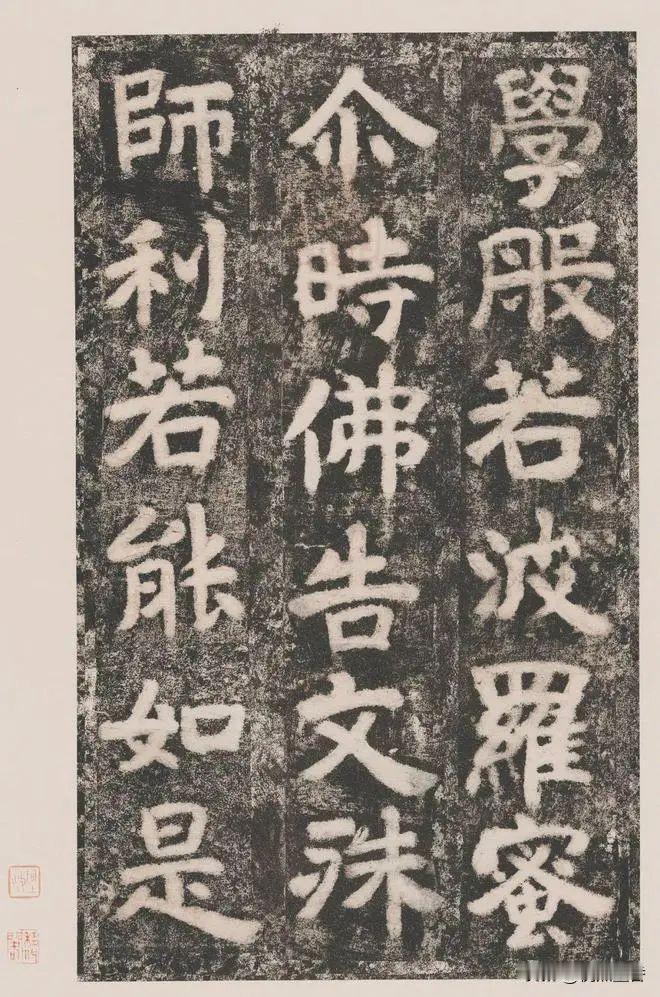 學般若波羅蜜
尒時佛告文殊
師利若能如是